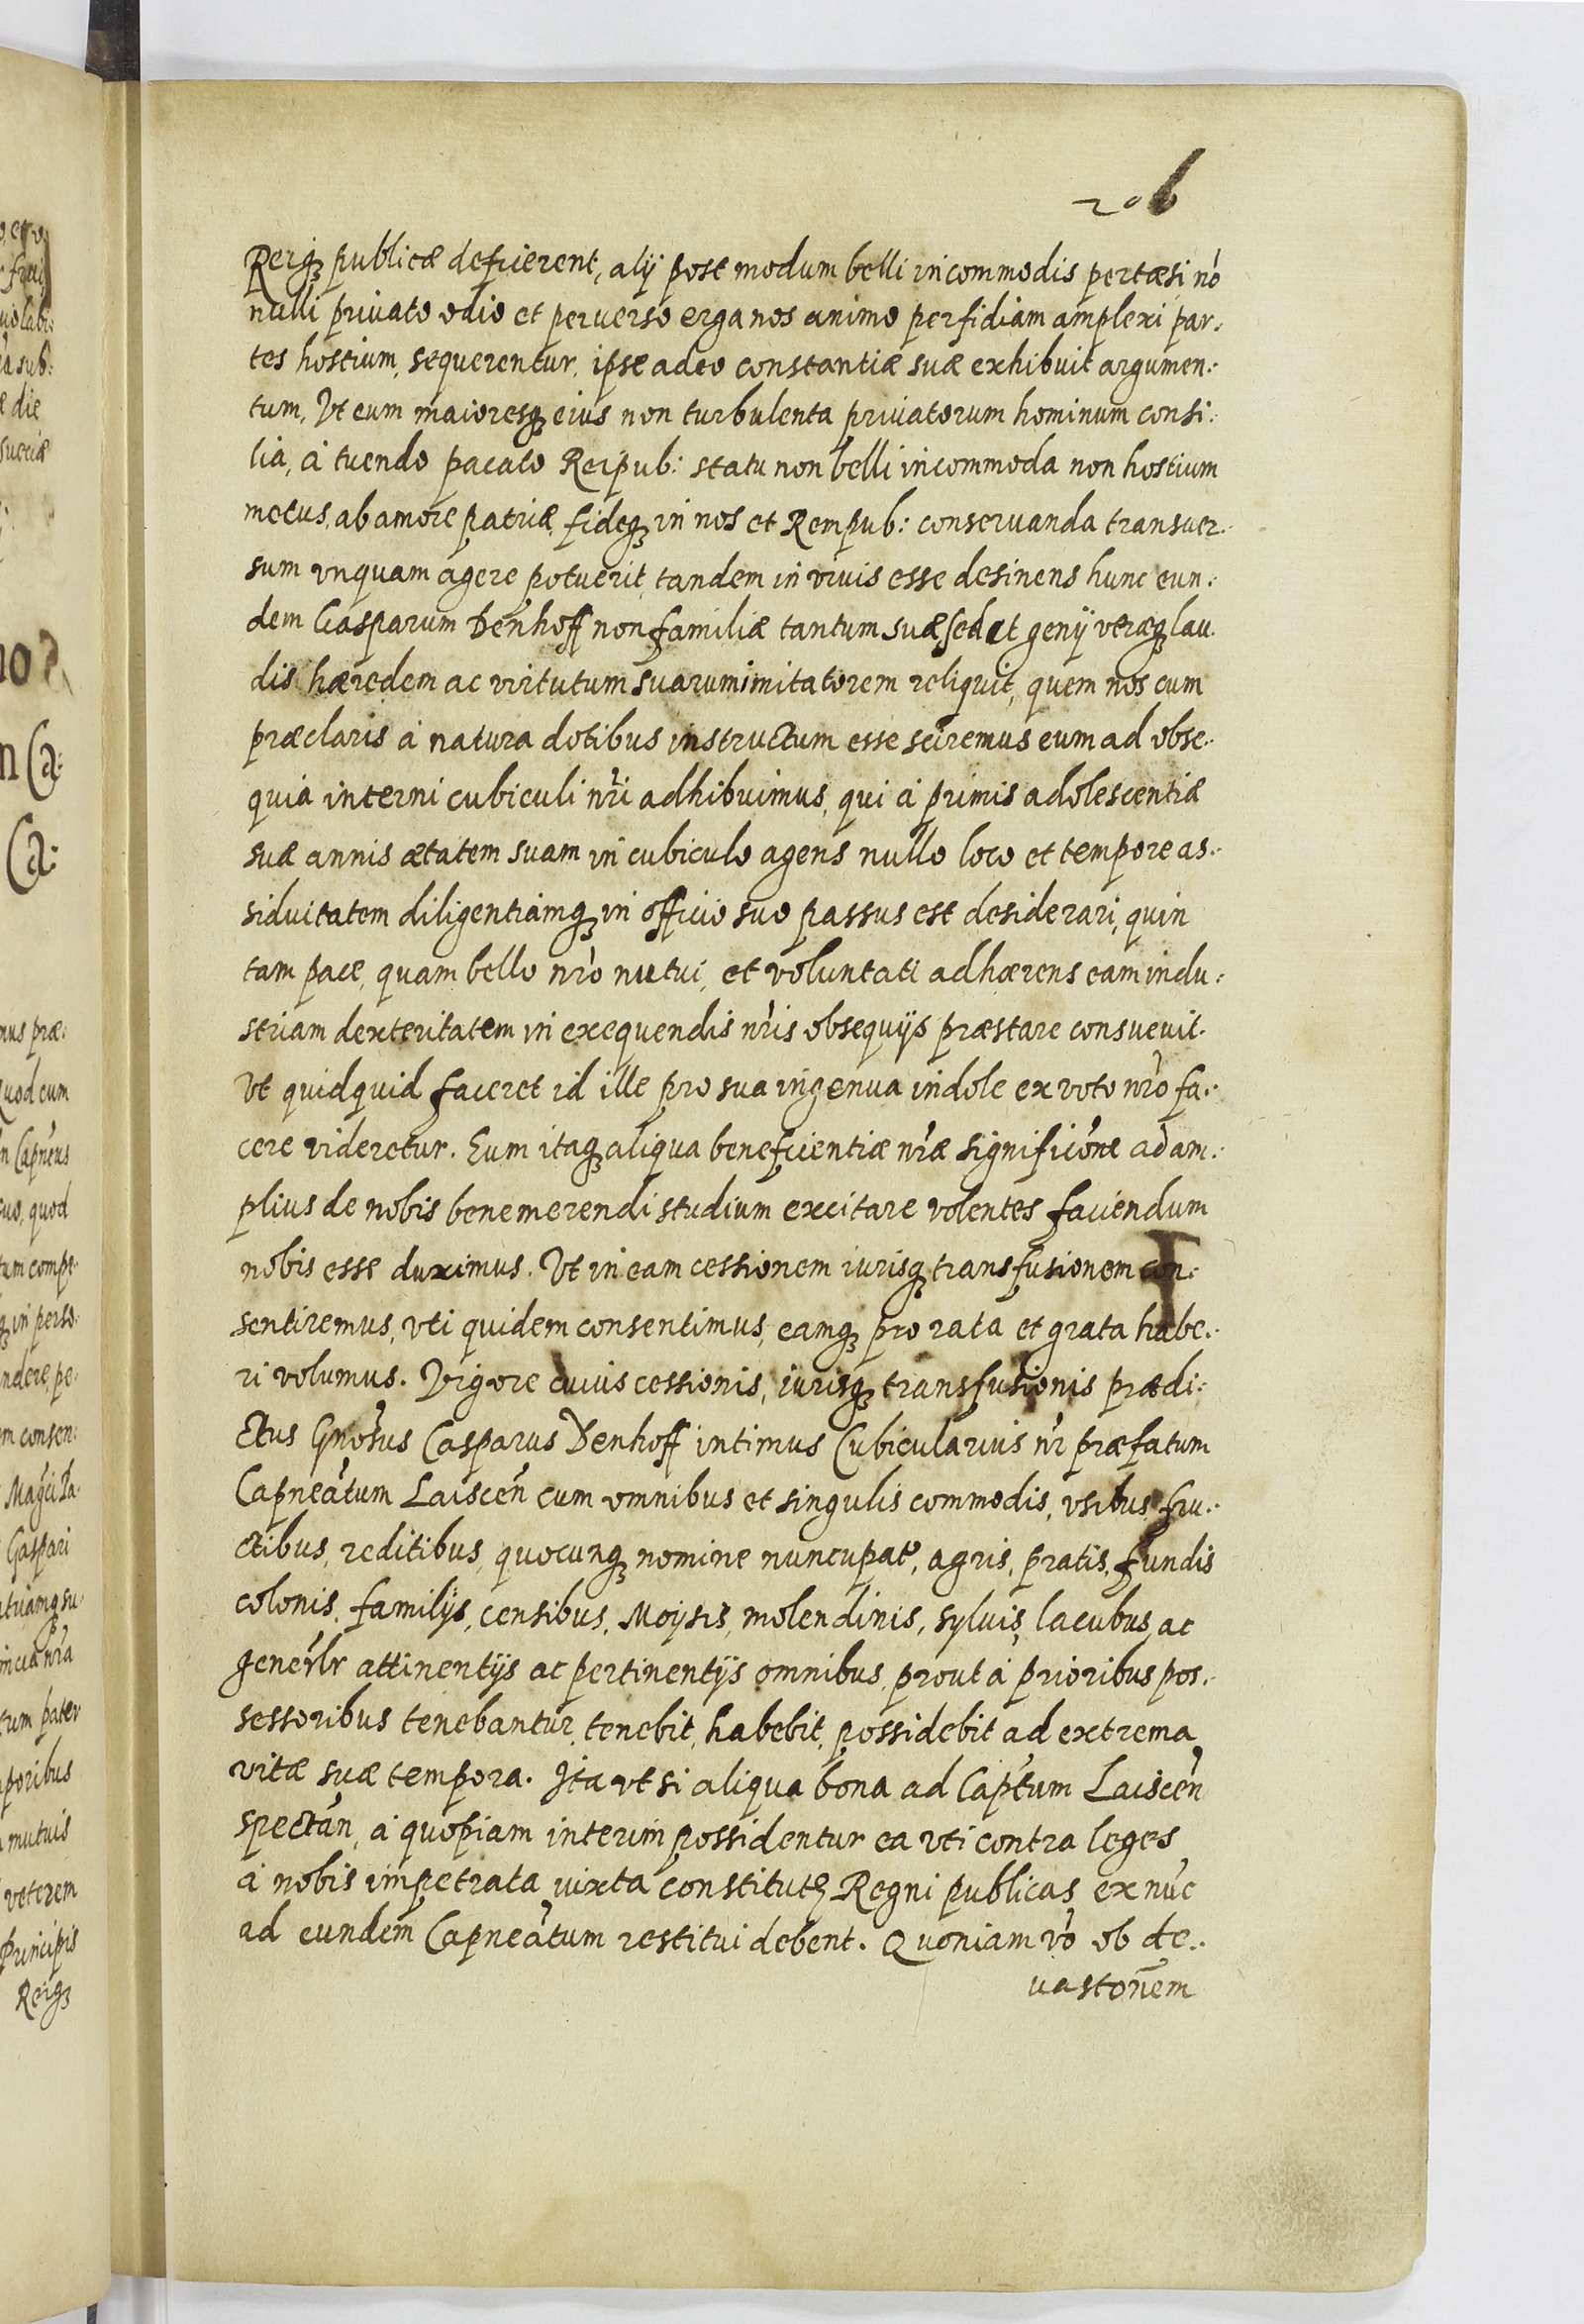 206
Reiq publicæ deficerent, alij post modum belli incommodis pertæsi nō
nulli priuato odio et peruerso erga nos animo perfidiam amplexi par:
tes hostium, sequerentur, ipse adeo constantiæ suæ exhibuit argumen:
tum, Vt eum maioresq eius non turbulenta priuatorum hominum consi:
lia, à tuendo pacato Reipub: statu non belli incommoda non hostium
metus, ab amore patriæ, fideq in nos et Rempub: conseruanda transuer:
sum vnquam agere potuerit, tandem in viuis esse desinens hunc eun:
dem Gasparum Denhoff non familiæ tantum suæ sed et genij veræq lau
dis hæredem ac virtutum suarum imitatorem reliquit, quem nos cum
præclaris à natura dotibus instructum esse sciremus eum ad obse:
quia interni cubiculi nr̄i adhibuimus, qui à primis adolescentiæ
suæ annis ætatem suam in cubiculo agens nullo loco et tempore as:
siduitatem diligentiamq in officio suo passus est desiderari, quin
tam pace, quam bello nr̄o nutui, et voluntati adhærens eam indu:
striam dexteritatem in exequendis nr̄is obsequijs præstare consueuit.
Vt quidquid faceret id ille pro sua ingenua indole ex voto nr̄o fa:
cere videretur. Eum itaq aliqua beneficientiæ nr̄æ significōne ad am:
plius de nobis benemerendi studium excitare volentes faciendum
nobis esse duximus. Vt in eam cessionem iurisq transfusionem con:
sentiremus, vti quidem consentimus, eamq pro rata et grata habe:
ri volumus. Vigore cuius cessionis, iurisq transfusionis prædi:
ctus Gnōsus Casparus Denhoff intimus Cubicularius nr̄ præfatum
Capneātum Laiscen̄ cum omnibus et singulis commodis, vsibus fru:
ctibus, reditibus, quocunq nomine nuncupat', agris, pratis, fundis
colonis, familijs, censibus, Moysis, molendinis, syluis, lacubus, ac
genērlr attinentijs ac pertinentijs omnibus, prout à prioribus pos:
sessoribus tenebantur, tenebit, habebit, possidebit ad extrema
vitæ suæ tempora. Ita vt si aliqua bona ad Cap̄tum Laiscen̄
spectan̄, à quopiam interim possidentur ea vti contra leges
à nobis impetrata iuxta constitut Regni publicas ex nūc
ad eundem Capneātum restitui debent. Quoniam vō ob de:
uastōnem